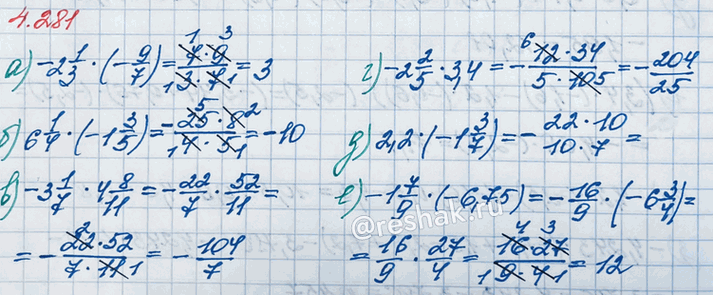 4.281
а) -2 1/3 · (- 9/7) = 7·9 / 3·7 = 3
б) 6 1/4 · (-1 3/5) = - 25·8 / 4·5 = -10
в) -3 1/7 · 4 8/11 = - 22/7 · 52/11 =
= - 22·52 / 7·11 = - 104/7
г) -2 2/5 · 3,4 = - 12·34 / 5·10 = - 204/25
д) 2,2 · (-1 3/7) = - 22·10 / 10·7 =
е) -1 7/9 · (-6,75) = - 16/9 · (-6 3/4) =
= 16/9 · 27/4 = 16·27 / 9·4 = 12
@reshak.ru